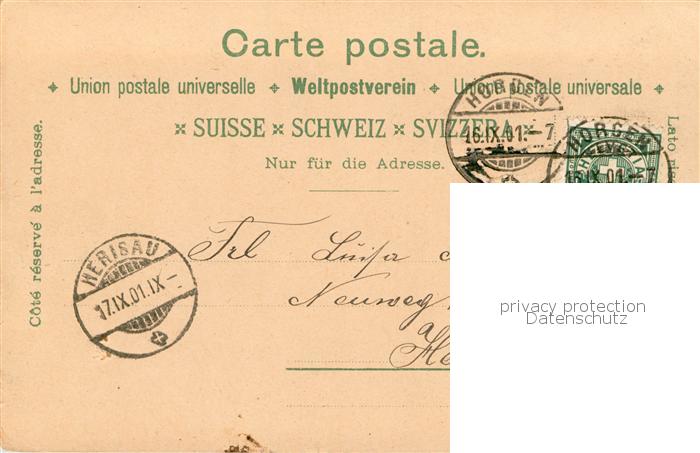 Carte postale.
Union postale universelle Weltpostverein Union postale universale
SUISSE SCHWEIZ SVIZZERA
Nur für die Adresse.
Côté réservé à l'adresse.
Lato
HORGEN
16.IX.01.-7
HORGEN
16.IX.01.-7
HERISAU
17.IX.01.IX-
Frl Luisa
Neuweg
privacy protection
Datenschutz